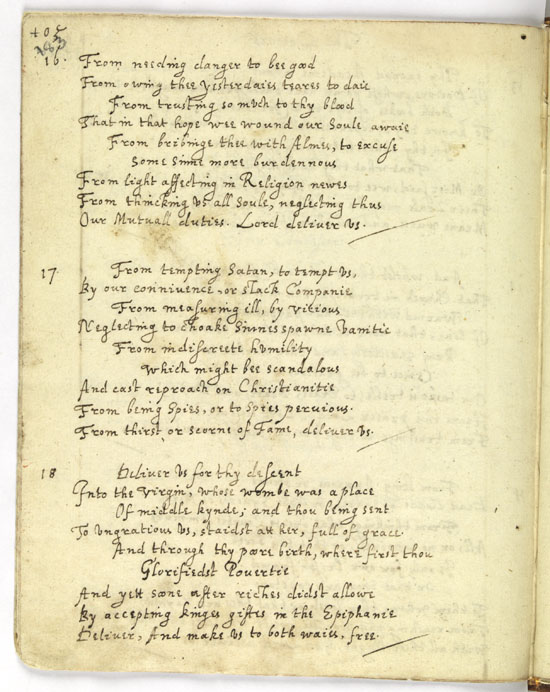 405
183
16. From needing danger to bee good
From owing thee yesterdaies teares to daie
From trusting so much to thy blood
That in that hope wee wound our Soule awaie
From bribinge thee with Almes, to excuse
Some Sinne more burdennous
From light affecting in Religion newes
From thincking vs all Soule, neglecting thus
Our Mutuall duties. Lord deliver vs.
17 From tempting Satan, to tempt vs,
By our connivence, or slack Companie
From measuring ill, by vitious
Neglecting to choake Sinnes spawne Vanitie
From indiscreete humility
Which might bee scandalous
And cast reproach on Christianitie
From being Spies, or to Spies pervious.
From thirst, or scorne of Fame, deliver vs.
18 Deliver vs for thy descent
Into the Virgin, whose wombe was a place
Of middle kynde; and thou being sent
To vngratious vs, staidst att her, full of grace.
And through thy poore birth, where first thou
Glorifiedst Povertie
And yett soone after riches didst allowe
By accepting kinges giftes in the Epiphanie
Deliver, And make vs to both waies, free.